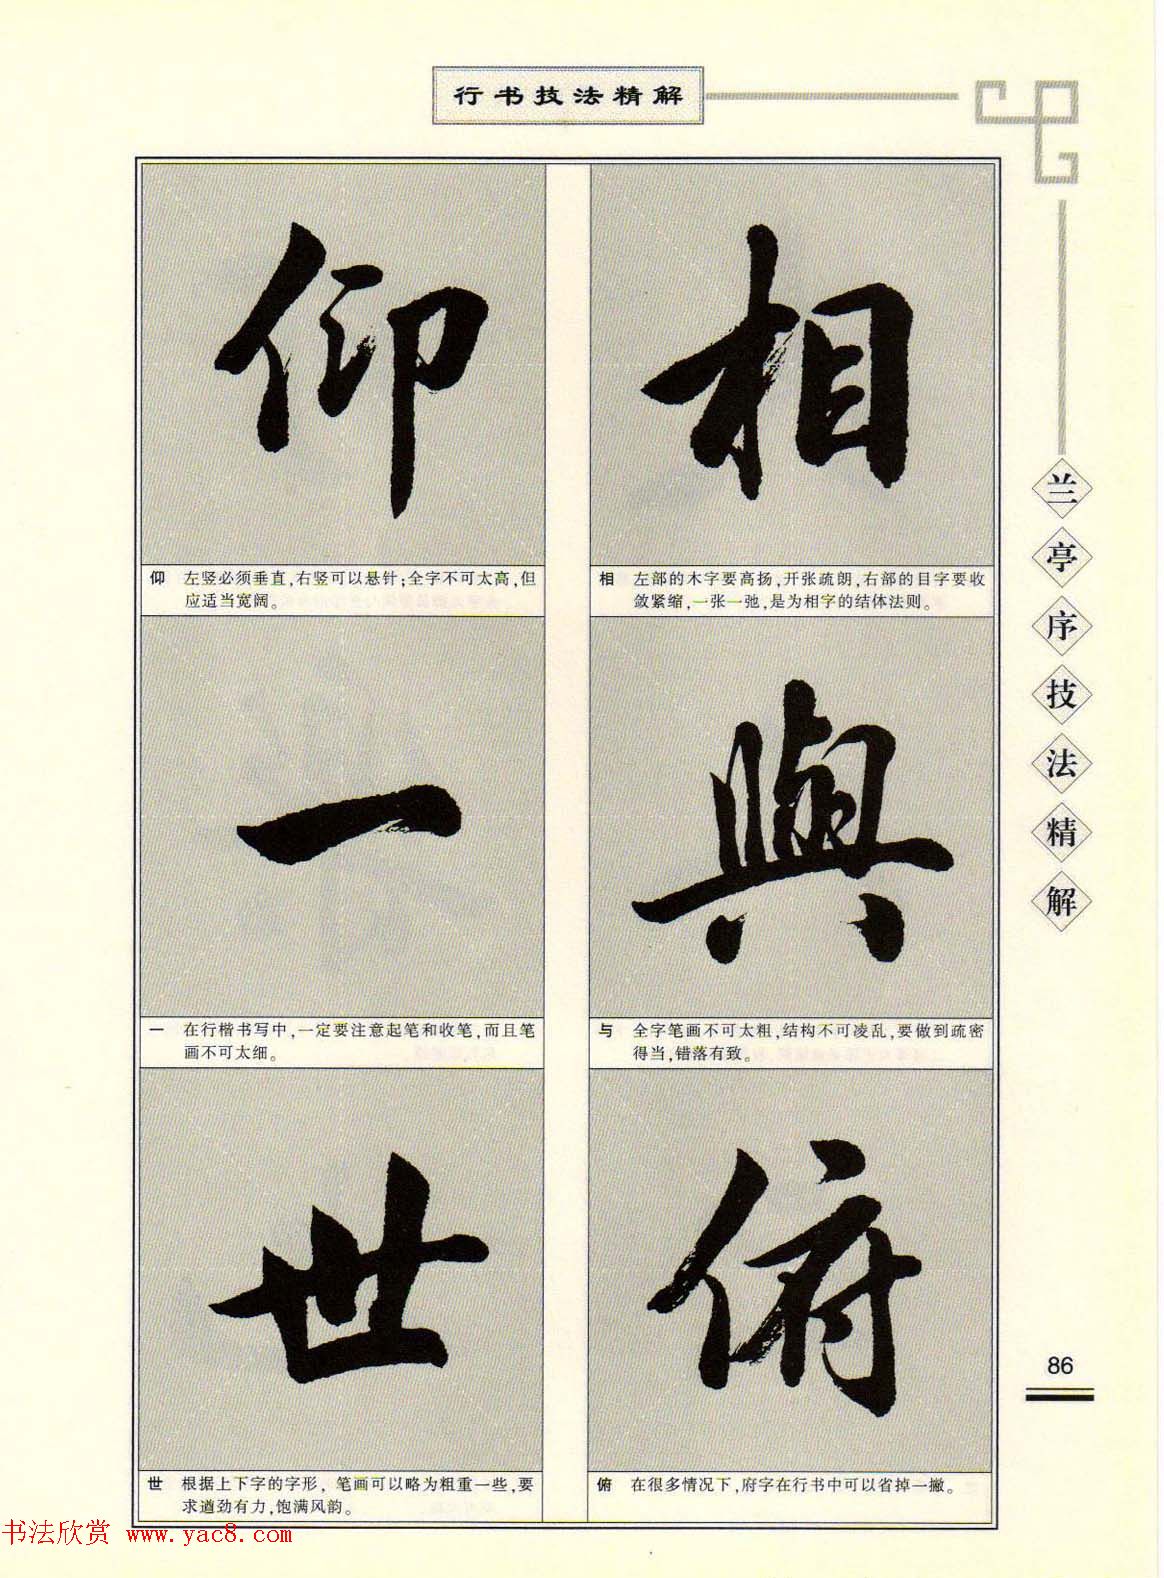 行书技法精解
相
相 左部的木字要高扬,开张疏朗,右部的目字要收
敛紧缩,一张一弛,是为相字的结体法则。
與
与 全字笔画不可太粗,结构不可凌乱,要做到疏密
得当,错落有致。
俯
俯 在很多情况下,府字在行书中可以省掉一撇。
仰
仰 左竖必须垂直,右竖可以悬针;全字不可太高,但
应适当宽阔。
一
一 在行楷书写中,一定要注意起笔和收笔,而且笔
画不可太细。
世
世 根据上下字的字形,笔画可以略为粗重一些,要
求遒劲有力,饱满风韵。
兰亭序技法精解
86
书法欣赏 www.yac8.com